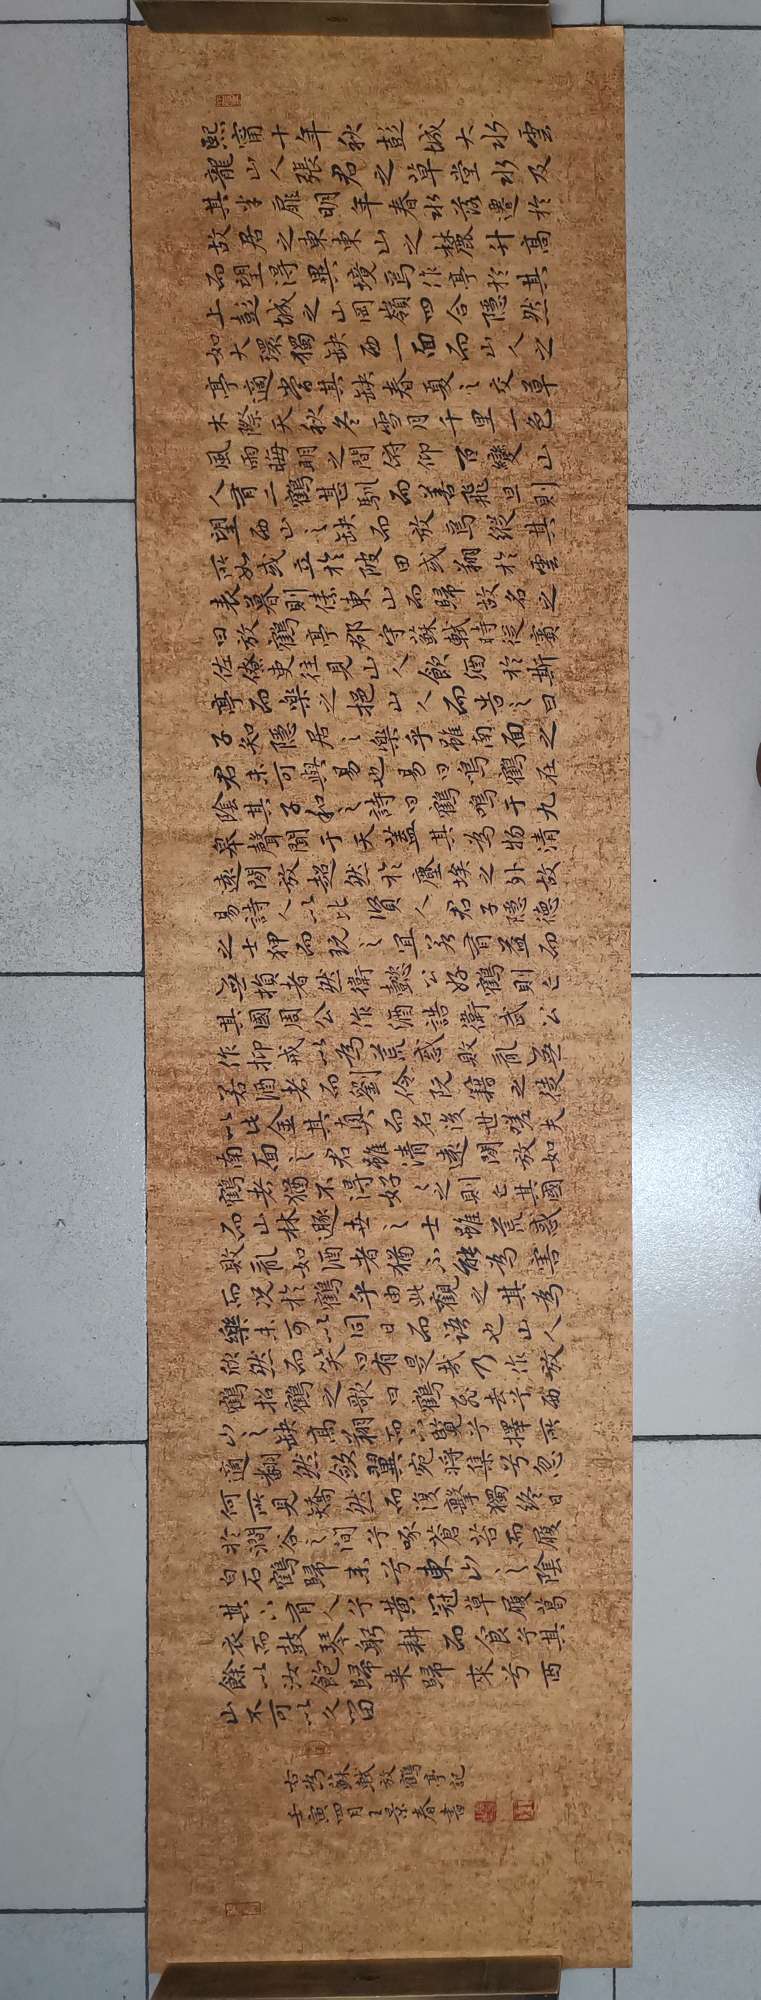 熙甯十年秋彭城大水雲
龍山人張君之草堂水及
其半扉明年春水落遷於
故居之東東山之麓升高
而望得異境焉作亭於其
上彭城之山岡嶺四合隱然
如大環獨缺西一面而山人之
亭適當其缺春夏之交草
木際天秋冬雪月千里一色
風雨晦明之間俯仰百變山
人有二鶴甚馴而善飛旦則
望西山之缺而放焉縱其
所如或立於陂田或翔於雲
表暮則傃東山而歸故名之
曰放鶴亭郡守蘇軾時從賓
佐僚吏往見山人飲酒於斯
亭而樂之挹山人而告之曰
子知隱居之樂乎雖南面之
君未可與易也易曰鳴鶴在
陰其子和之詩曰鶴鳴于九
皋聲聞于天蓋其為物清
遠閑放超然於塵埃之外故
易詩人以比賢人君子隱德
之士狎而玩之宜若有益而
無損者然衛懿公好鶴則亡
其國周公作酒誥衛武公
作抑戒以為荒惑敗亂無
若酒者而劉伶阮籍之徒
以此全其真而名後世嗟夫
南面之君雖清遠閑放如
鶴者猶不得好好之則亡其國
而山林遯世之士雖荒惑
敗亂如酒者猶不能為害
而況於鶴乎由此觀之其為
樂未可以同日而語也山人
欣然而笑曰有是哉乃作放
鶴招鶴之歌曰鶴飛去兮西
山之缺高翔而下覽兮擇所
適翻然斂翼宛將集兮忽
何所見矯然而復擊獨終日
於澗谷之間兮啄蒼苔而履
白石鶴歸來兮東山之陰
其下有人兮黃冠草履葛
衣而鼓琴躬耕而食兮其
餘以汝飽歸來歸來兮西
山不可以久留
右為蘇軾放鶴亭記
壬寅四月王景春書